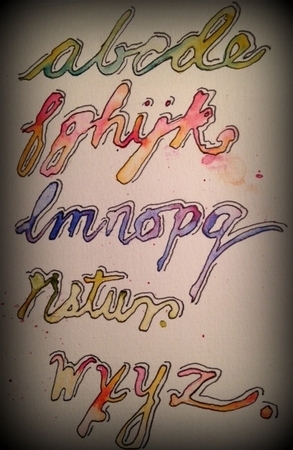 abcde
fghijk.
lmnopq
rstuv.
wxyz.